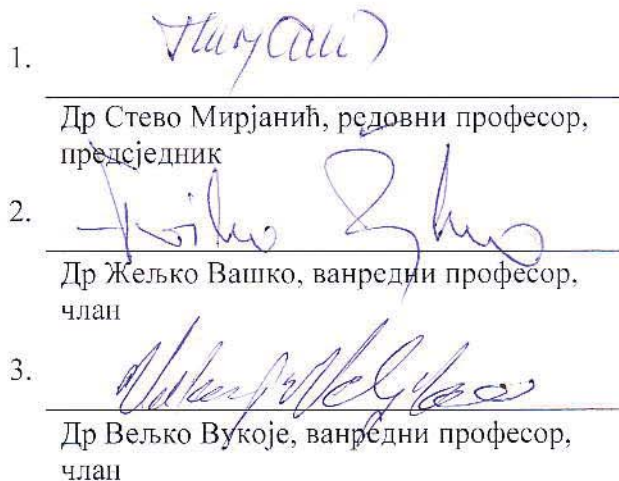 1.
Др Стево Мирјанић, редовни професор,
предсједник
2.
Др Жељко Вашко, ванредни професор,
члан
3.
Др Вељко Вукоје, ванредни професор,
члан